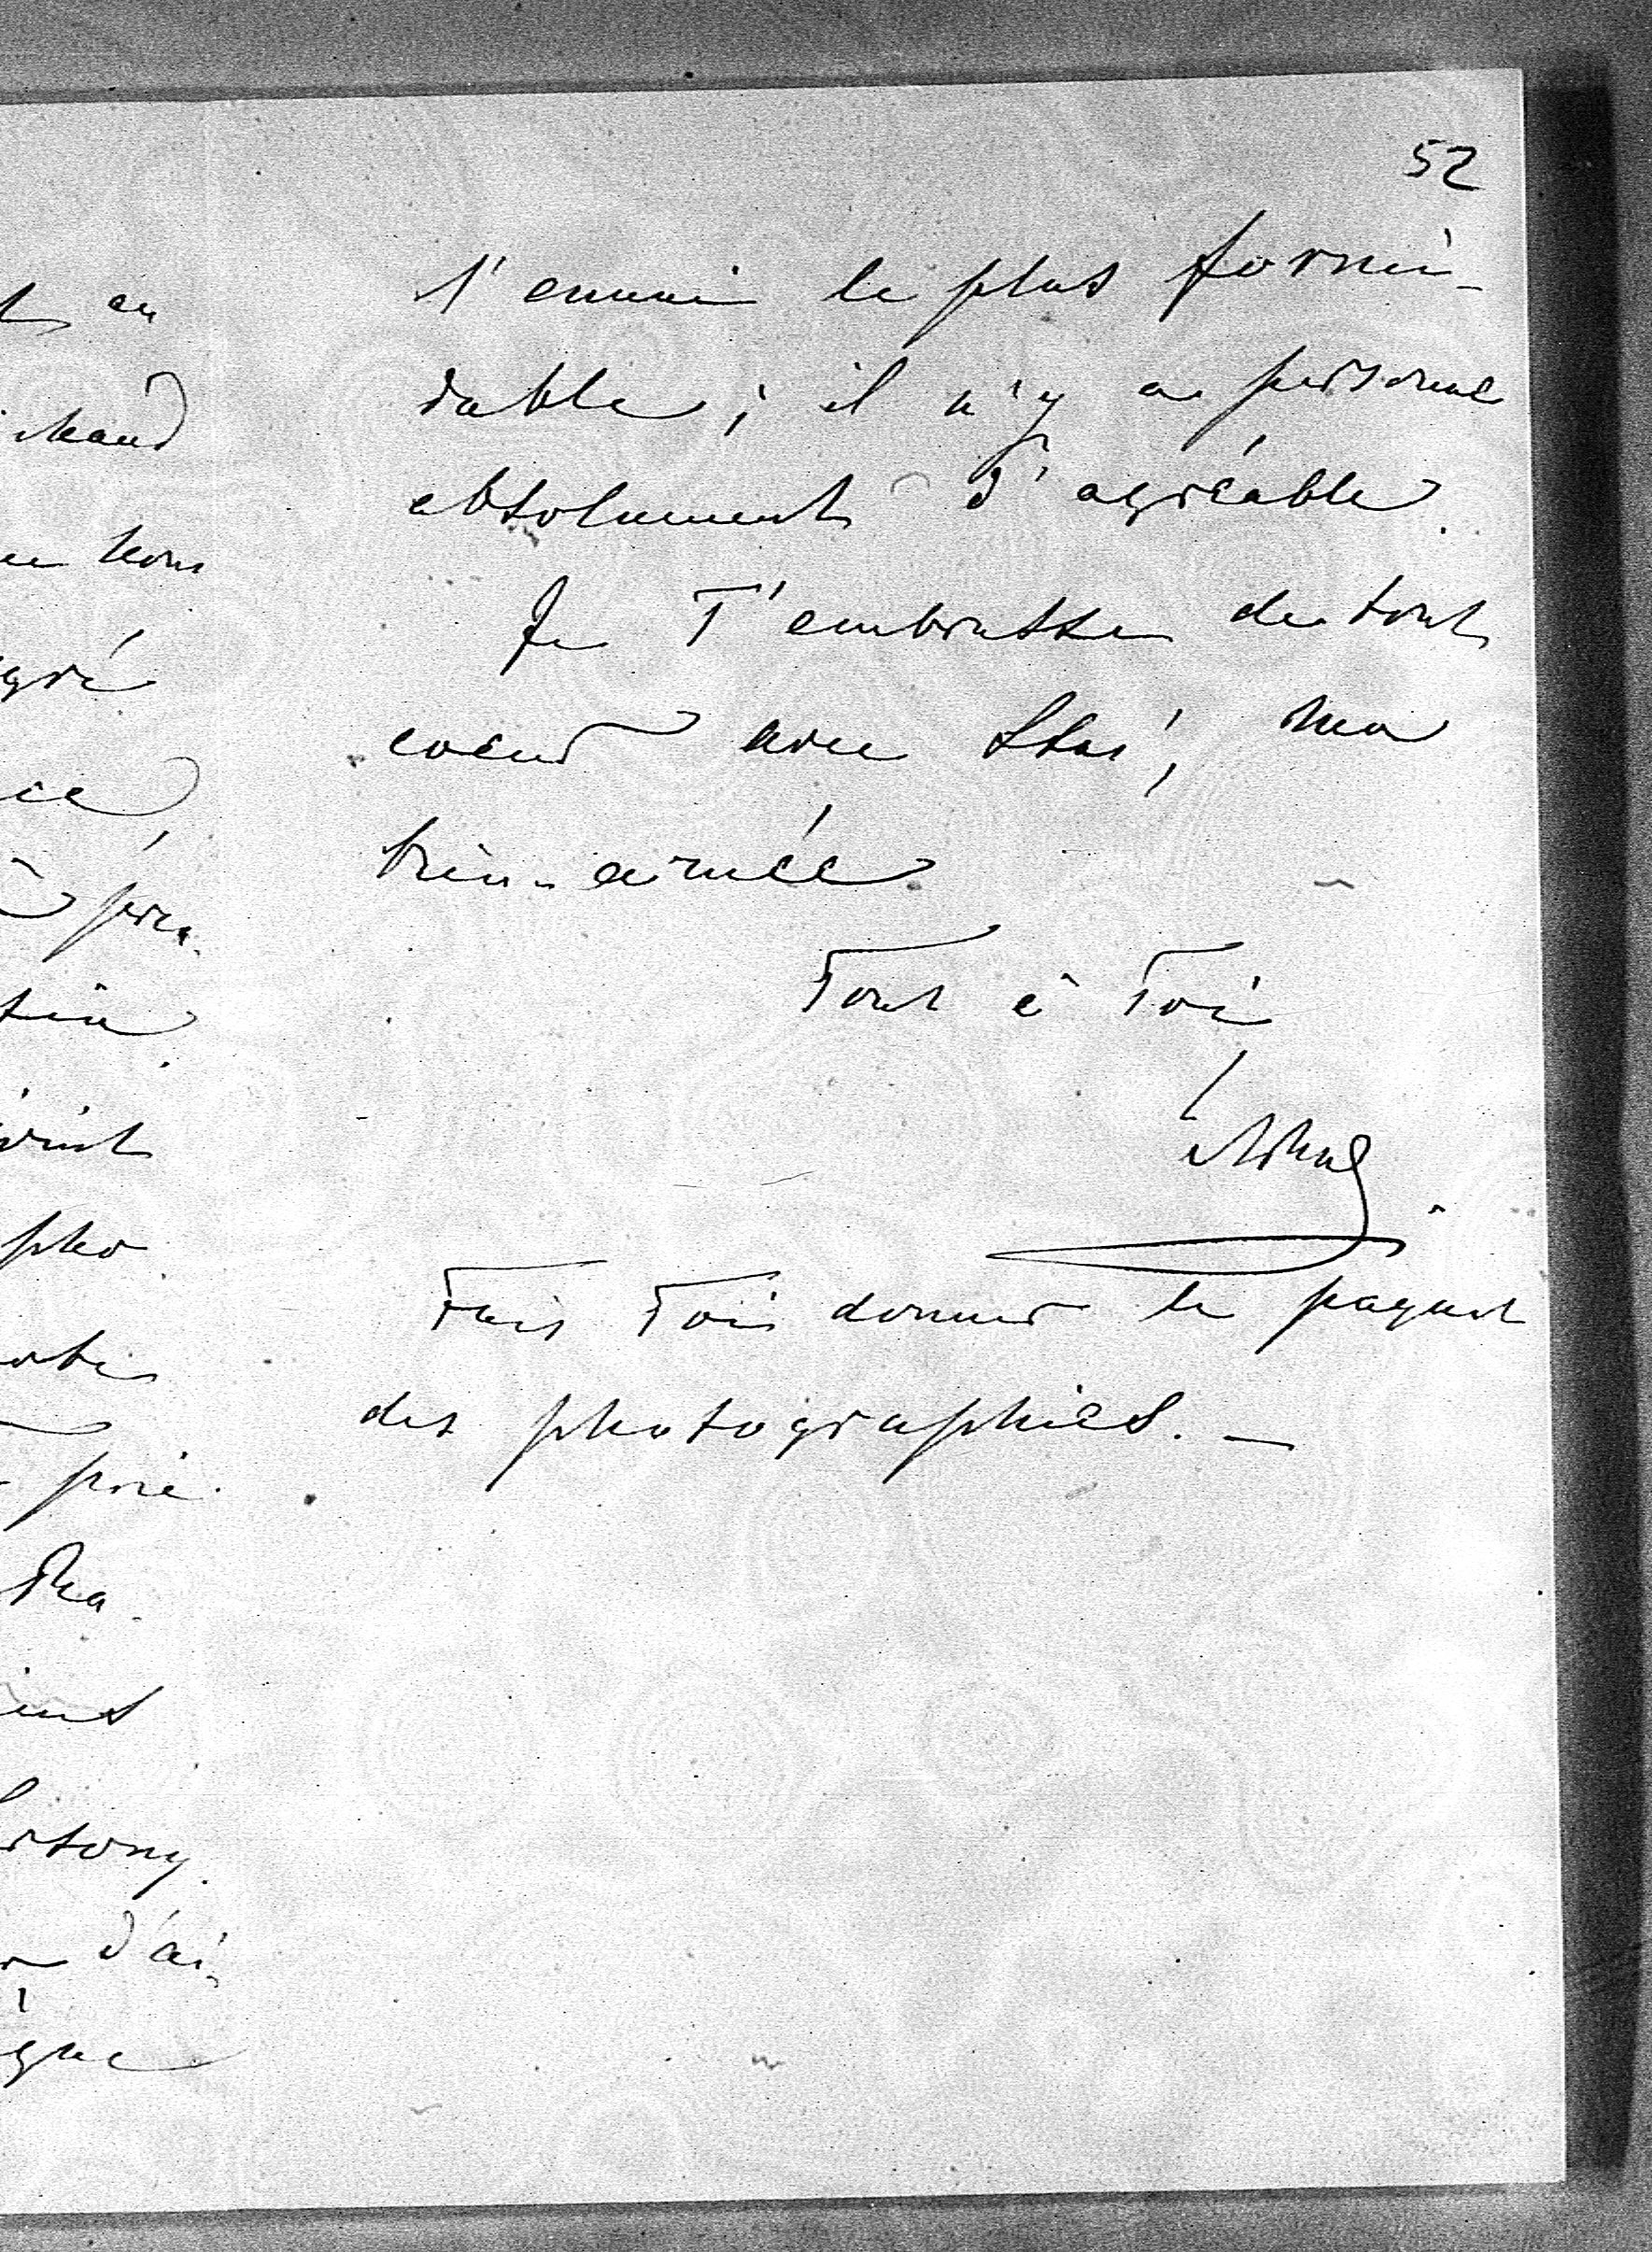 52
l'ennui le plus formi-
dable ; il n'y a personne
absolument d'agréable.
Je T'embrasse de tout
coeur avec Stas', ma
bien-aimée
Tout à Toi
Fais Toi donner le paquet
des photographies. —
en
chaud
nous
gré
pho
prié
d'ai
que